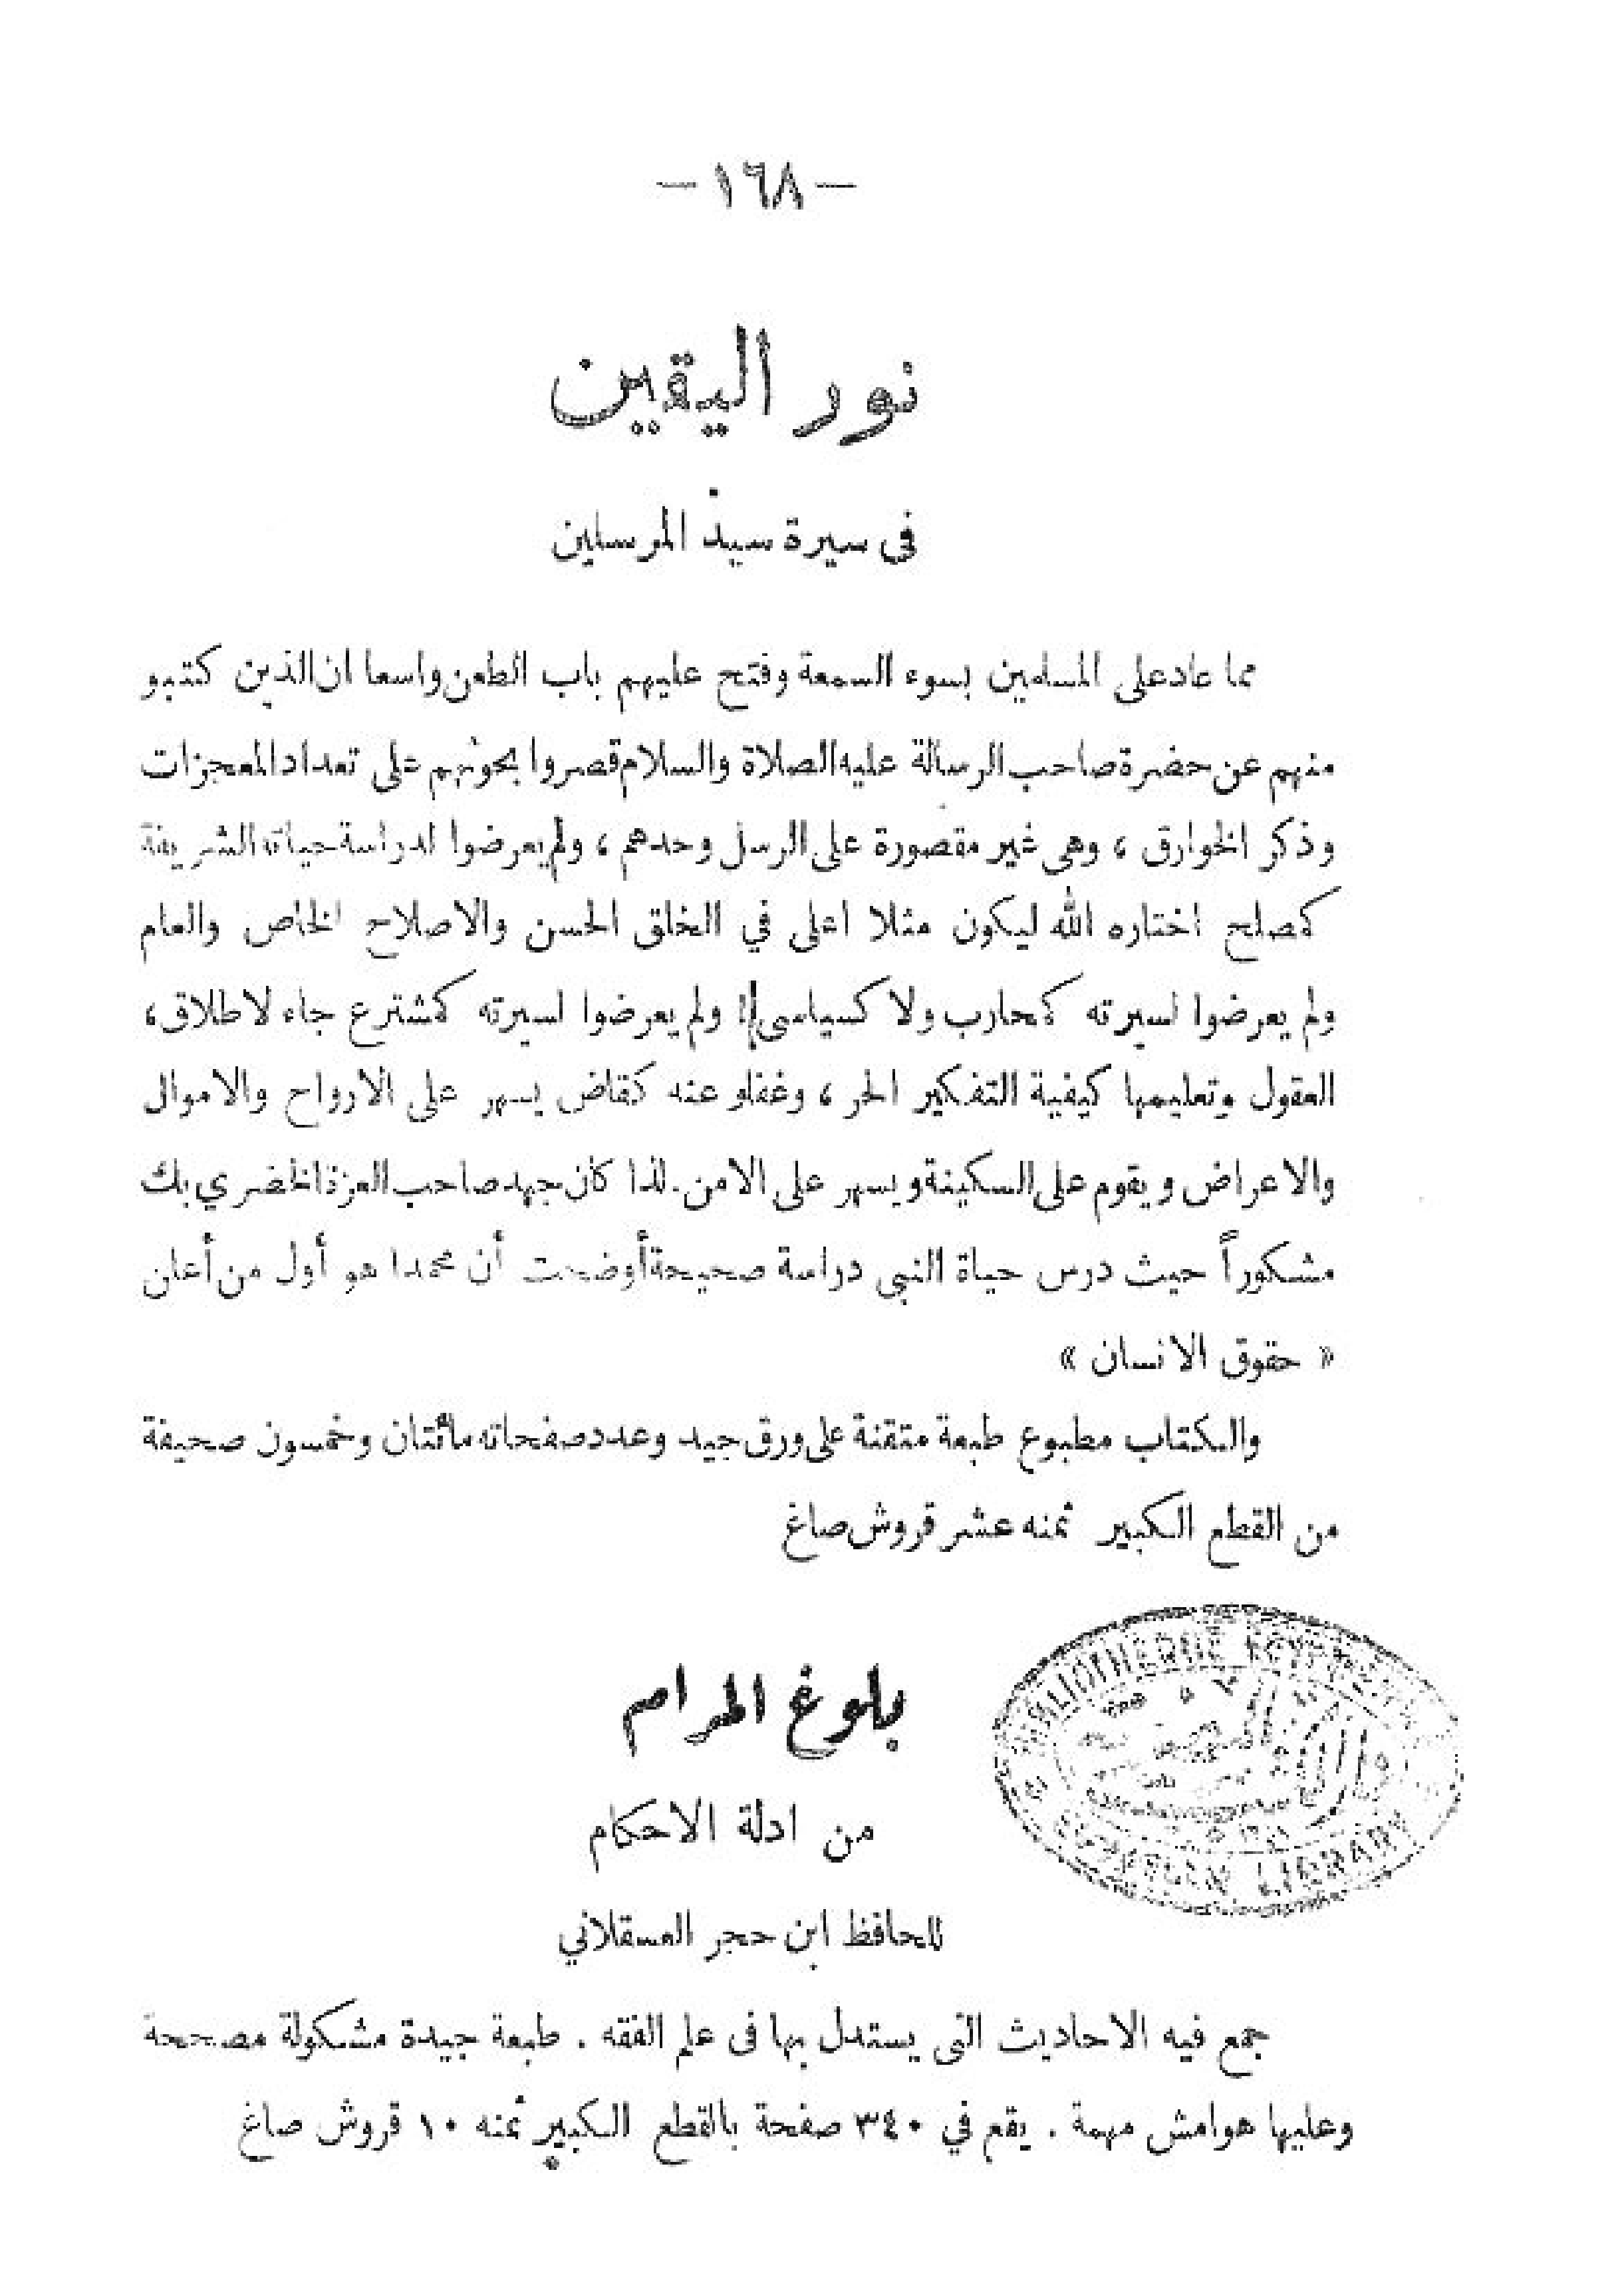 — ١٦٨ —
نور اليقين
فى سيرة سيد المرسلين
مما عاد على المسلمين بسوء السمعة وفتح عليهم باب الطعن واسعا ان الذين كتبو
منهم عن حضرة صاحب الرسالة عليه الصلاة والسلام قصروا بحوثهم على تعداد المعجزات
وذكر الخوارق ، وهى غير مقصورة على الرسل وحدهم ، ولم يعرضوا لدراسة حياته الشريفة
كمصلح اختاره الله ليكون مثلا اعلى في الخلق الحسن والاصلاح الخاص والعام
ولم يعرضوا لسيرته كمحارب ولا كسياسى ولم يعرضوا لسيرته كمشترع جاء لاطلاق،
العقول وتعليمها كيفية التفكير الحر ، وغفلو عنه كقاض يسهر على الارواح والاموال
والاعراض ويقوم على السكينة ويسهر على الامن. لذا كان جهد صاحب العزة الخضري بك
مشكوراً حيث درس حياة النبى دراسة صحيحة أوضحت أن محمدا هو أول من أعلن
« حقوق الانسان »
والكتاب مطبوع طبعة متقنة على ورق جيد وعدد صفحاته مائتان وخمسون صحيفة
من القطع الكبير ثمنه عشر قروش صاغ
بلوغ المرام
من ادلة الاحكام
للحافظ ابن حجر العسقلاني
جمع فيه الاحاديث التى يستدل بها فى علم الفقه . طبعة جيدة مشكولة مصححة
وعليها هوامش مهمة . يقع في ٣٤٠ صفحة بالقطع الكبير ثمنه ١٠ قروش صاغ
LIBRARY